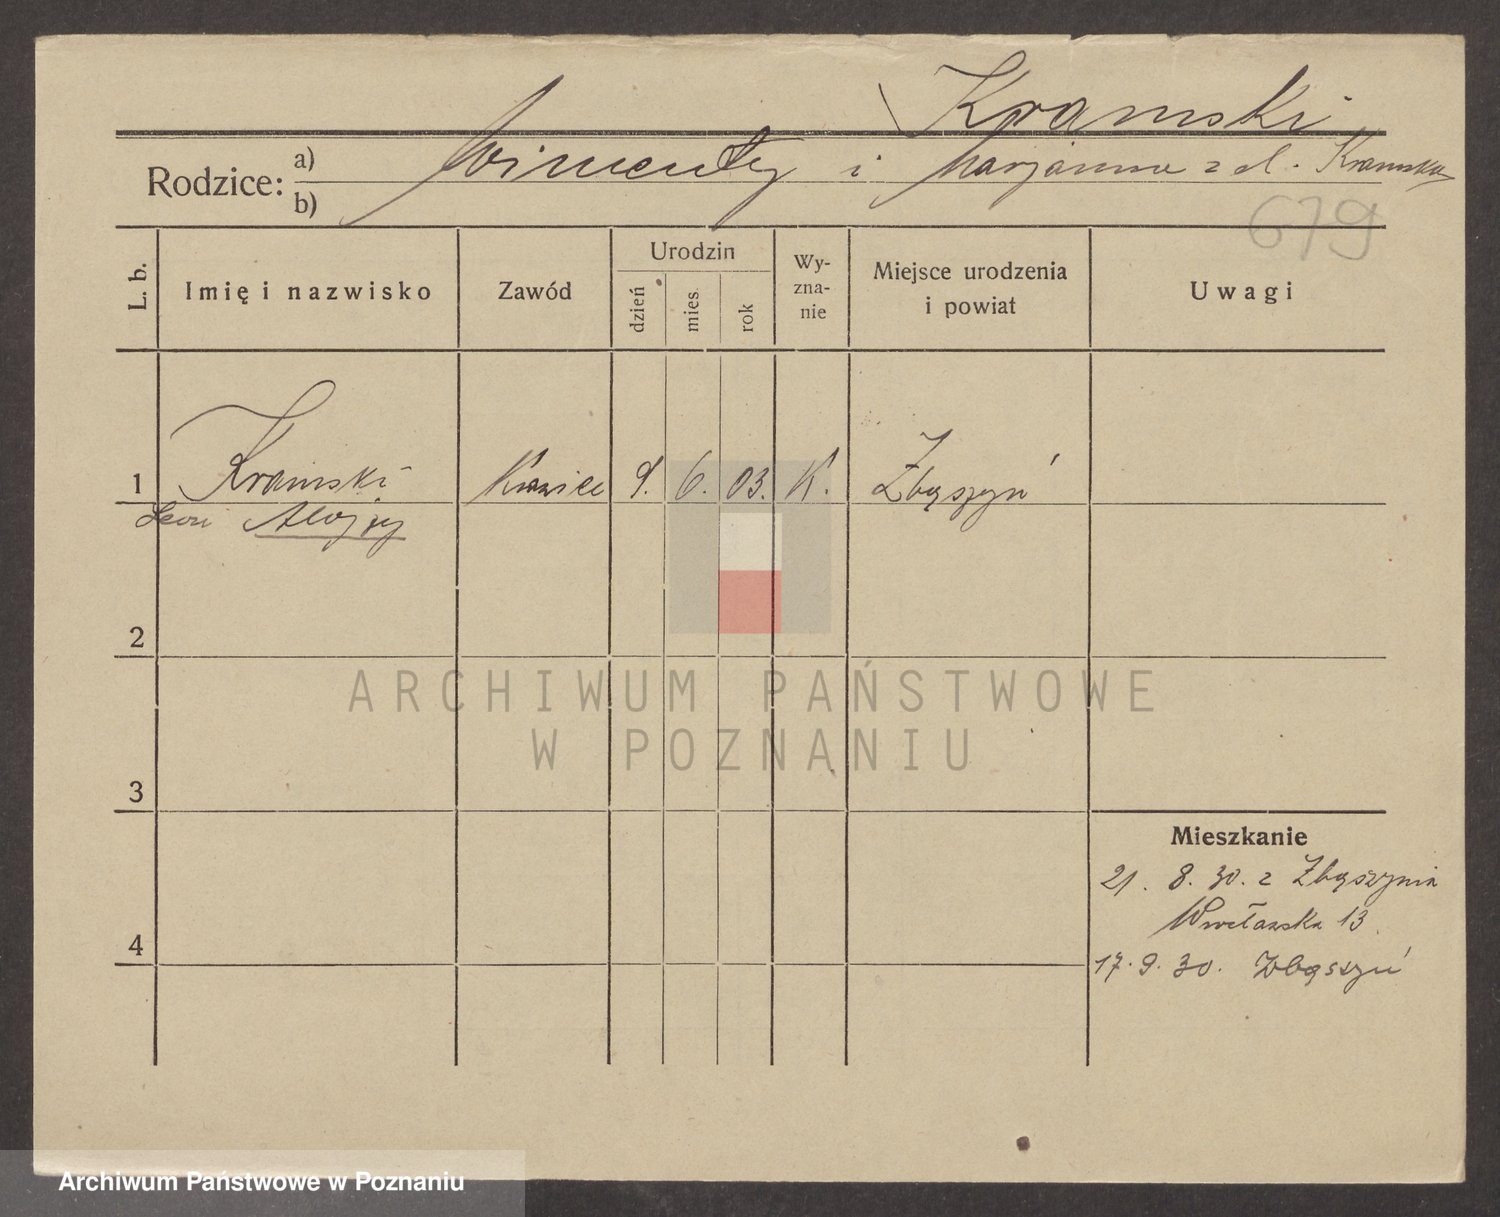 Kramski
Rodzice: a) Wincenty i Marjanna z d. Kramska
b)
679
L. b.
Imię i nazwisko
Zawód
Urodzin
dzień
mies.
rok
Wy-
zna-
nie
Miejsce urodzenia
i powiat
Uwagi
1 Kramski 9. 6. 03. K. Zbąszyń
Leon Alojzy
2
3
4
Mieszkanie
21. 8. 30. z Zbąszynia
13
17. 9. 30. Zbąszyń
ARCHIWUM PAŃSTWOWE
W POZNANIU
Archiwum Państwowe w Poznaniu